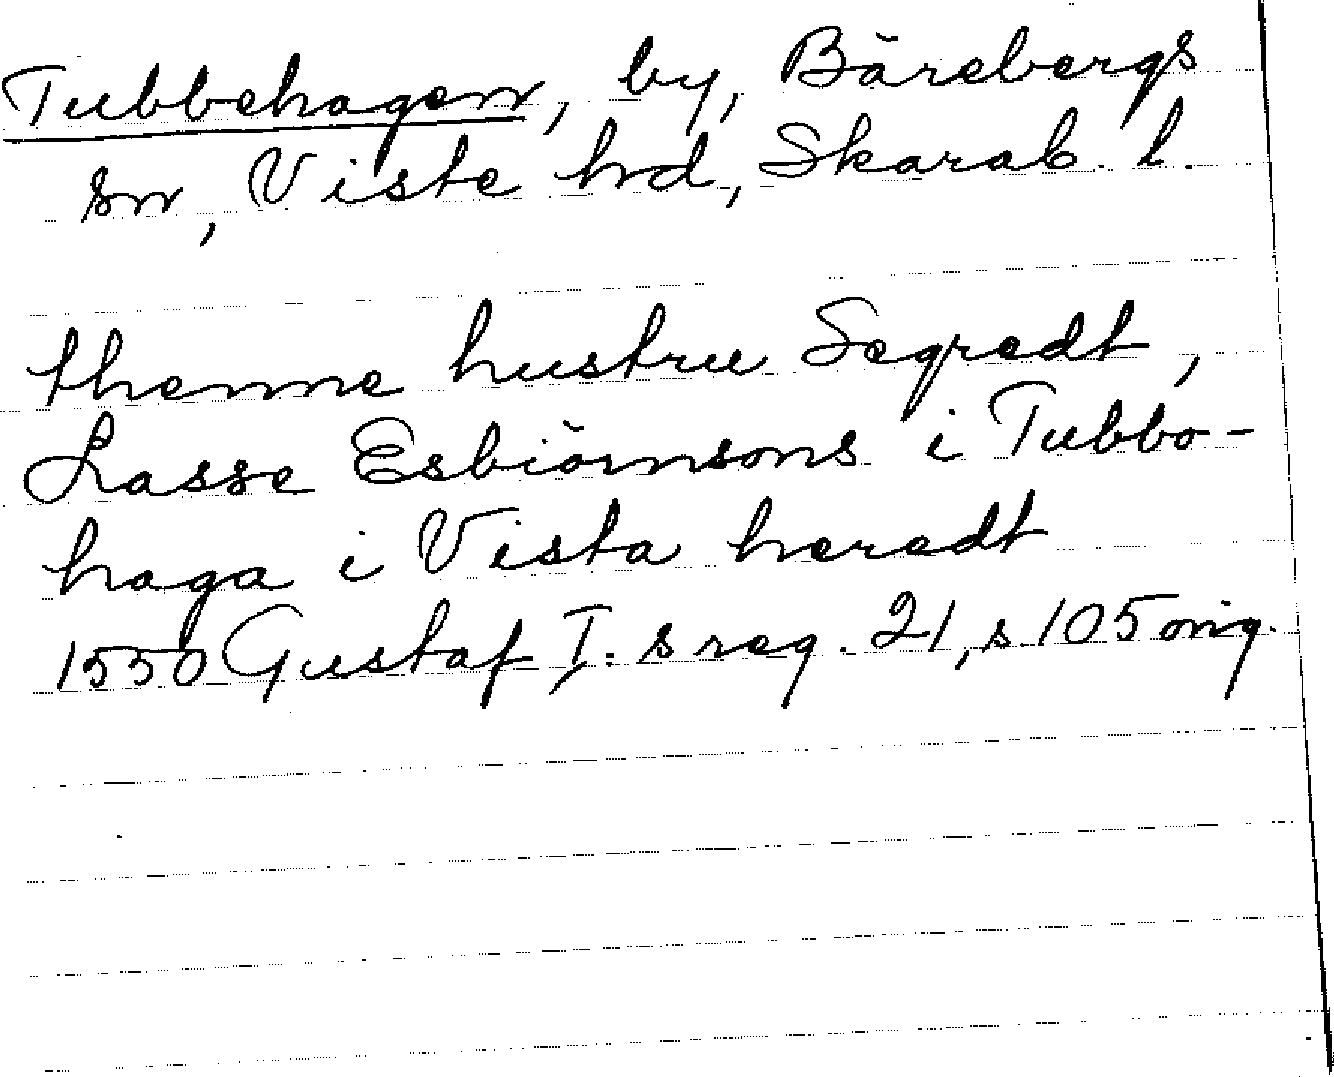 Tubbehagen, by, Bärebergs
sn, Viste hd, Skarab. l.
thenne hustru Segredt,
Lasse Esbiörnsons i Tubbo-
haga i Vista heredt
1550 Gustaf I:s reg. 21, s 105 orig.